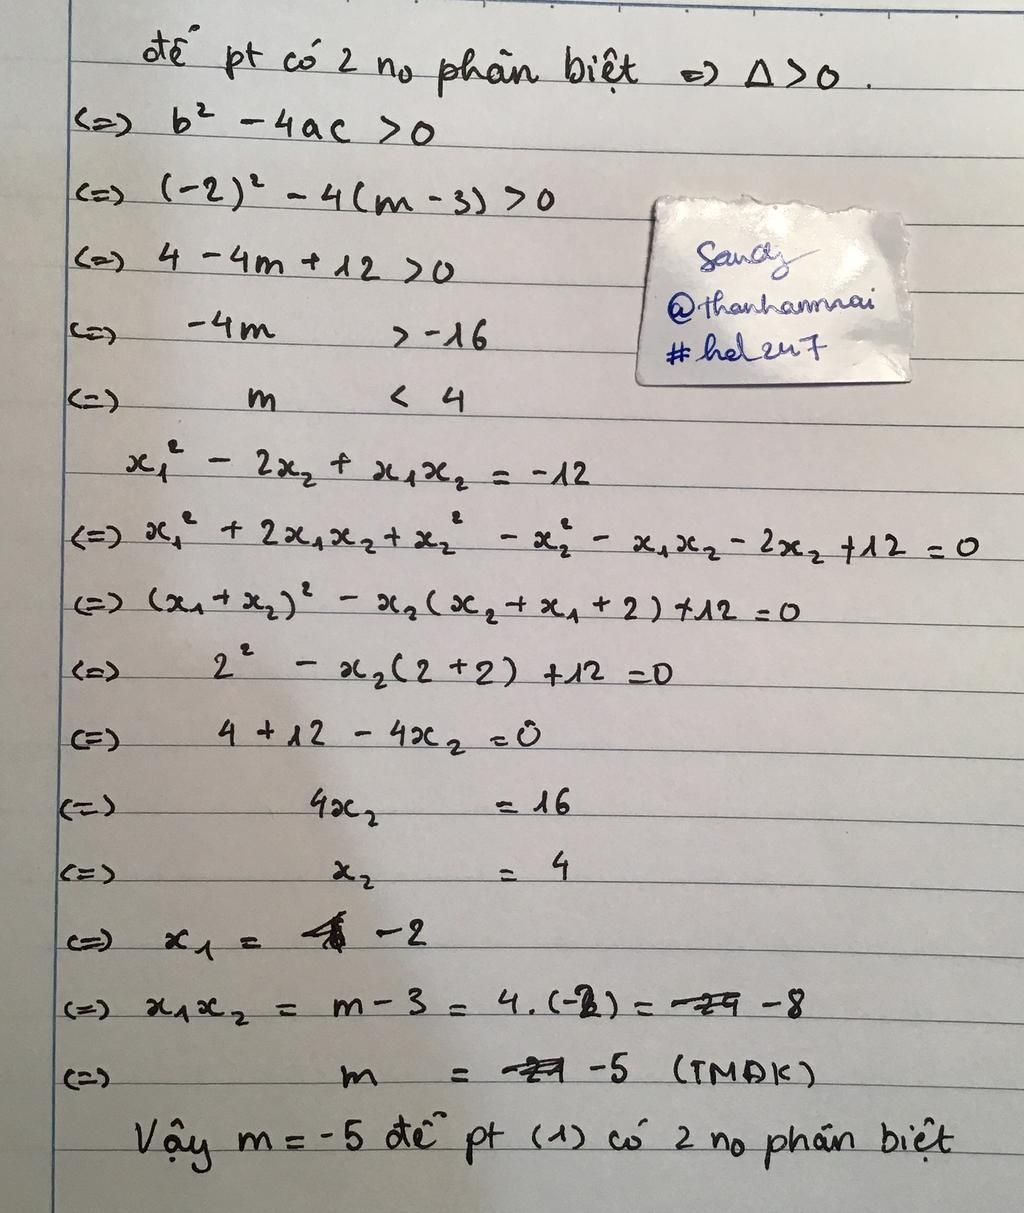 để pt có 2 no phân biệt => Δ > 0.
<=> b² - 4ac > 0
<=> (-2)² - 4(m - 3) > 0
<=> 4 - 4m + 12 > 0
<=> -4m > -16
<=> m < 4
Sandy
@thanhamnai
#hel247
x₁² - 2x₂ + x₁x₂ = -12
<=> x₁² + 2x₁x₂ + x₂² - x₂² - x₁x₂ - 2x₂ + 12 = 0
<=> (x₁ + x₂)² - x₂(x₂ + x₁ + 2) + 12 = 0
<=> 2² - x₂(2 + 2) + 12 = 0
<=> 4 + 12 - 4x₂ = 0
<=> 4x₂ = 16
<=> x₂ = 4
<=> x₁ = -2
<=> x₁x₂ = m - 3 = 4.(-2) = -8
<=> m = -5 (TMĐK)
Vậy m = -5 để pt (1) có 2 no phân biệt